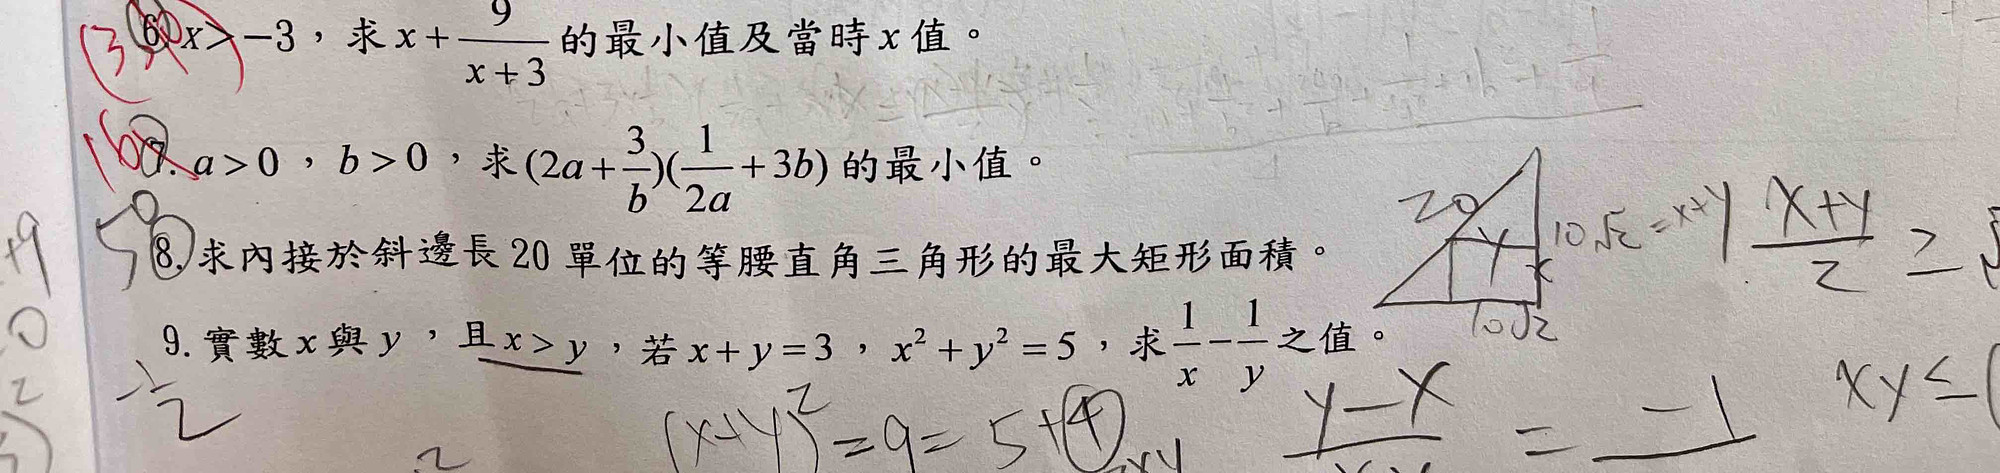 (3, 0) 6. x > -3，求 x + 9/(x+3) 的最小值及當時 x 值。
16 7. a > 0，b > 0，求 (2a + 3/b)(1/2a + 3b) 的最小值。
50 8. 求內接於斜邊長 20 單位的等腰直角三角形的最大矩形面積。
20 Y x 10√2 = x+y 10√2
(x+y)/2 ≥
9. 實數 x 與 y，且 x > y，若 x + y = 3，x² + y² = 5，求 1/x - 1/y 之值。
-1/2
(x+y)² = 9 = 5 + 4
2xy
(y-x)/xy = -1
xy ≤ (
+9
0
2